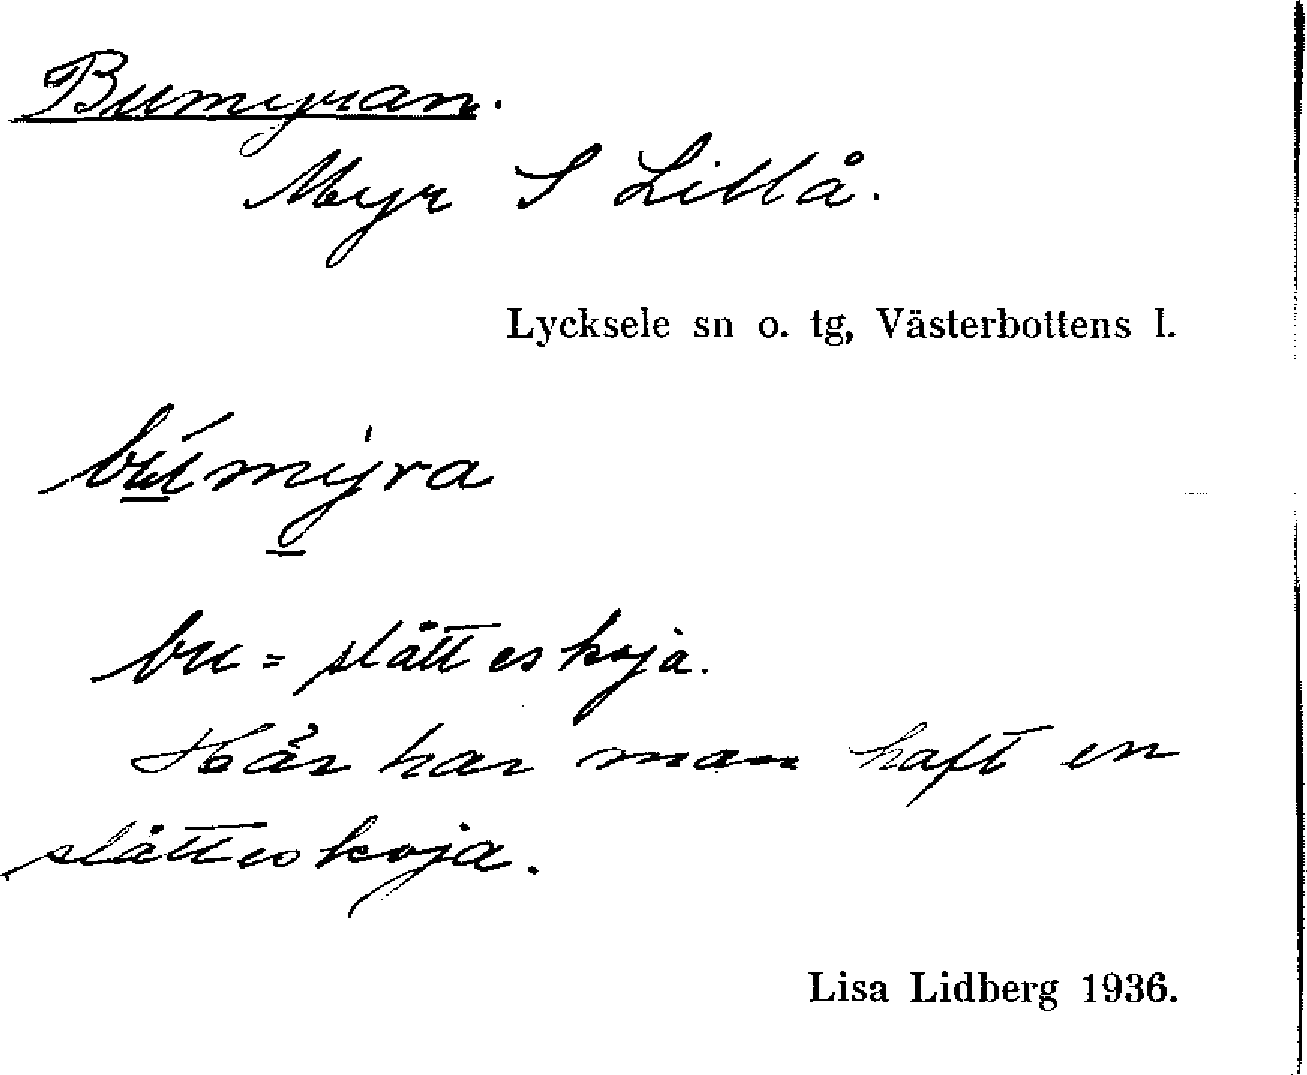 Bumyran.
Myr S Lillå.
Lycksele sn o. tg, Västerbottens l.
bú̲my̲ra
bu = slåtteskoja.
Här har man haft en
slåtteskoja.
Lisa Lidberg 1936.